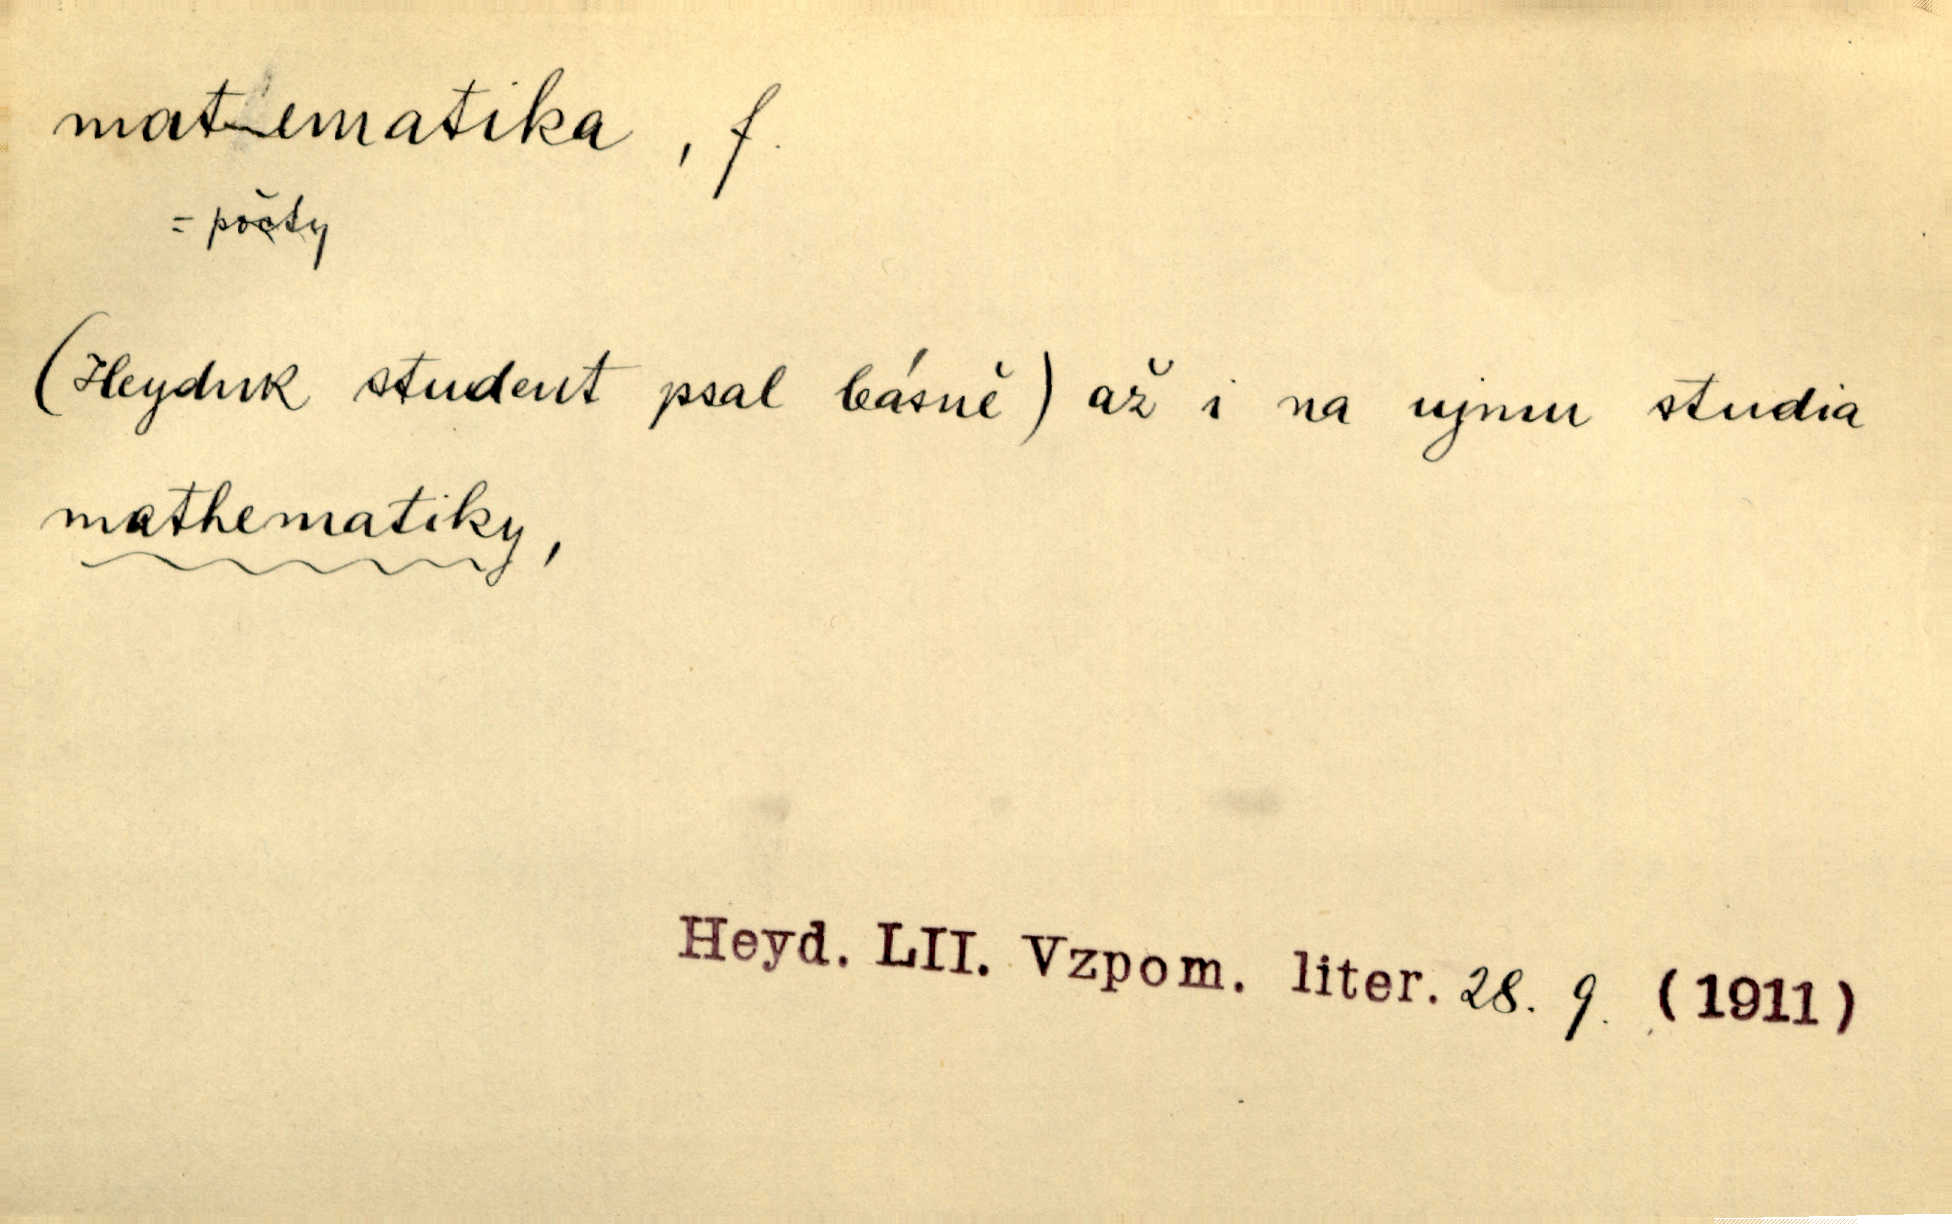 matematika, f.
= počty
(Heyduk student psal básně) až i na ujmu studia
mathematiky,
Heyd. LII. Vzpom. liter. 28. 9. (1911)